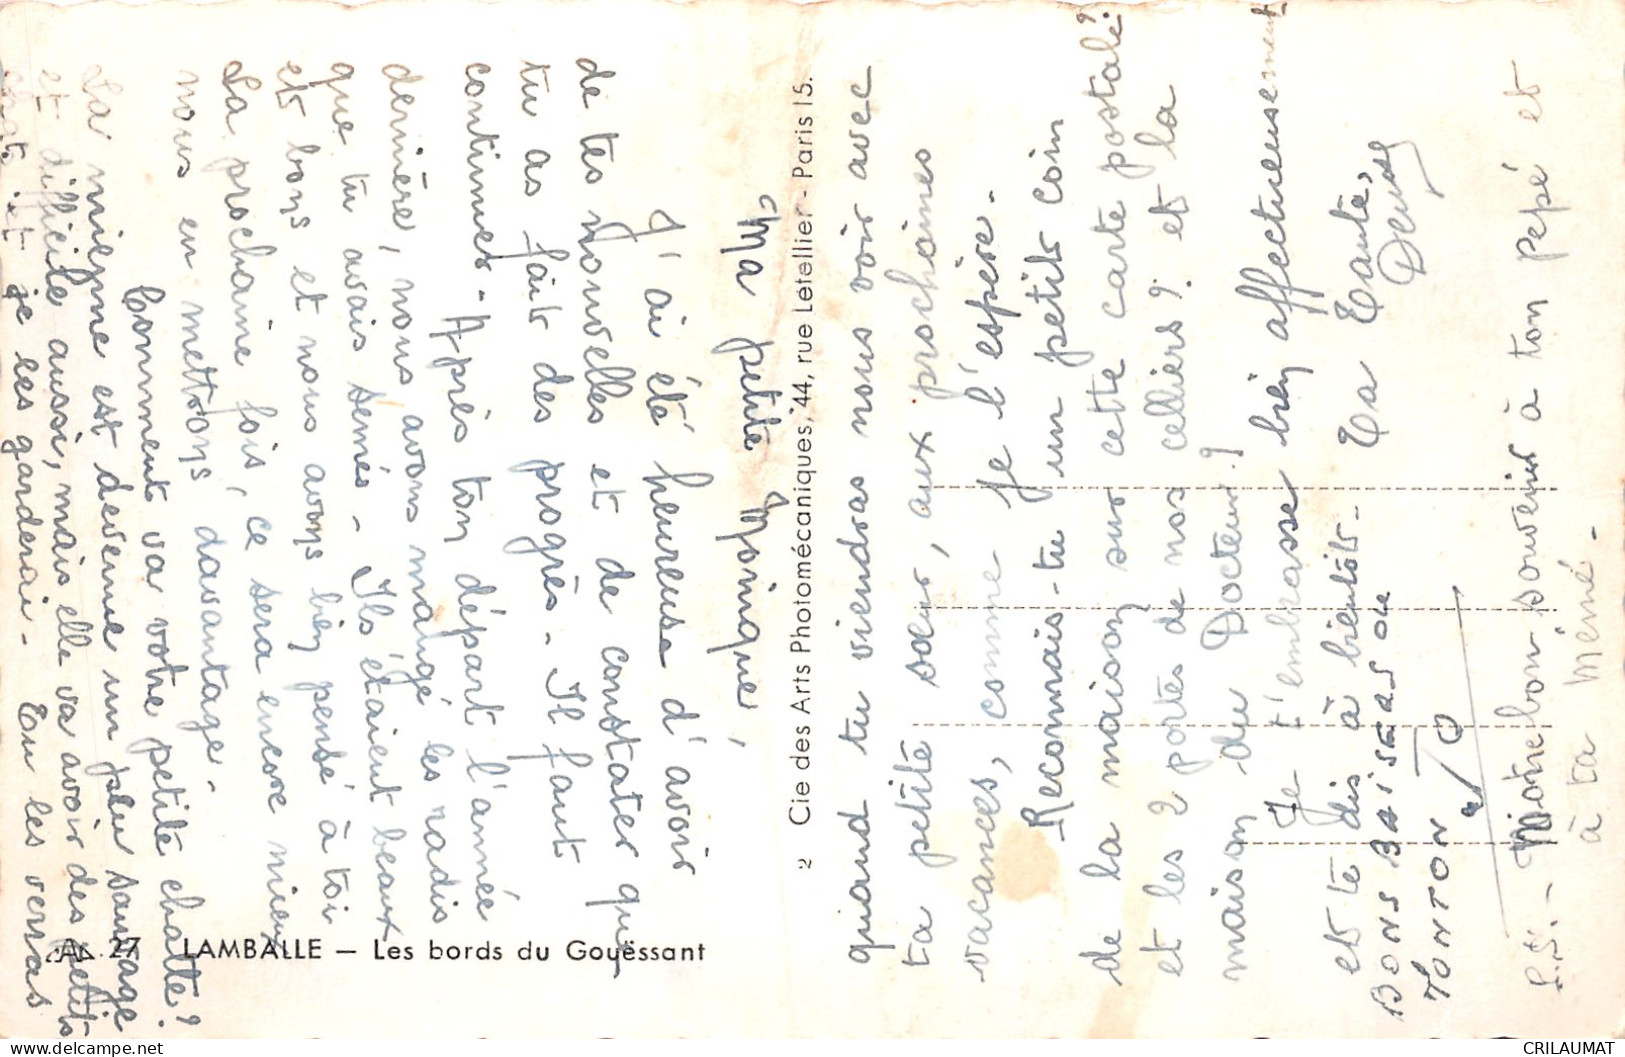 Ma petite Monique,
J'ai été heureuse d'avoir
de tes nouvelles et de constater que
tu as fait des progrès. Il faut
continuer. Après ton départ l'année
dernière, nous avons mangé les radis
que tu avais semés. Ils étaient beaux
et bons et nous avons bien pensé à toi
La prochaine fois, ce sera encore mieux
nous en mettrons davantage.
Comment va votre petite chatte?
La mienne est devenue un peu sauvage
et difficile aussi, mais elle va avoir des petits
et je les garderai. Tu les verras
quand tu viendras nous voir avec
ta petite sœur, aux prochaines
vacances, comme je l'espère.
Reconnais-tu un petit coin
de la maison sur cette carte postale?
et les 2 portes de nos celliers? et la
maison du Docteur?
Je t'embrasse bien affectueusement
et te dis à bientôt. Ta Tante,
Denise
BONS BAISERS DE
TONTON
P.S. - Notre bon souvenir à ton pépé et
à ta mémé.
2 Cie des Arts Photomécaniques, 44, rue Letellier - Paris 15.
27 LAMBALLE — Les bords du Gouëssant
delcampe.net
CRILAUMAT